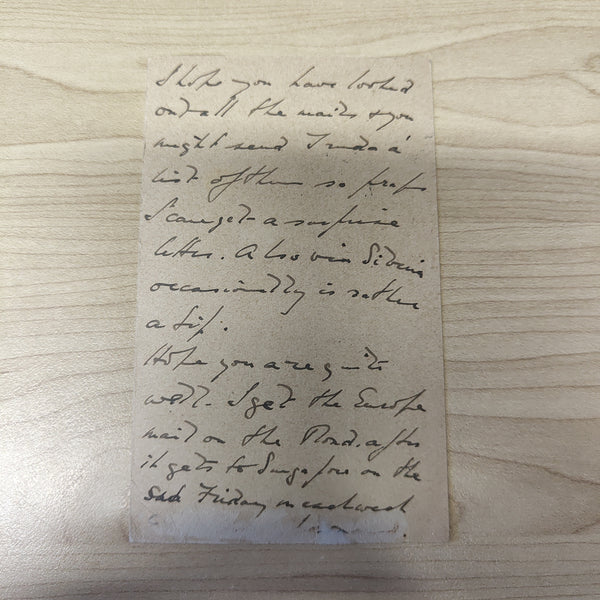 I hope you have looked
out all the mails & you
might send Trudo a
list of them so praps
I can get a surprise
letter. Also via Siberia
occasionally is rather
a tip.
Hope you are quite
well. I get the Europe
mail on the Mond. after
it gets to Singapore on the
Friday in each week